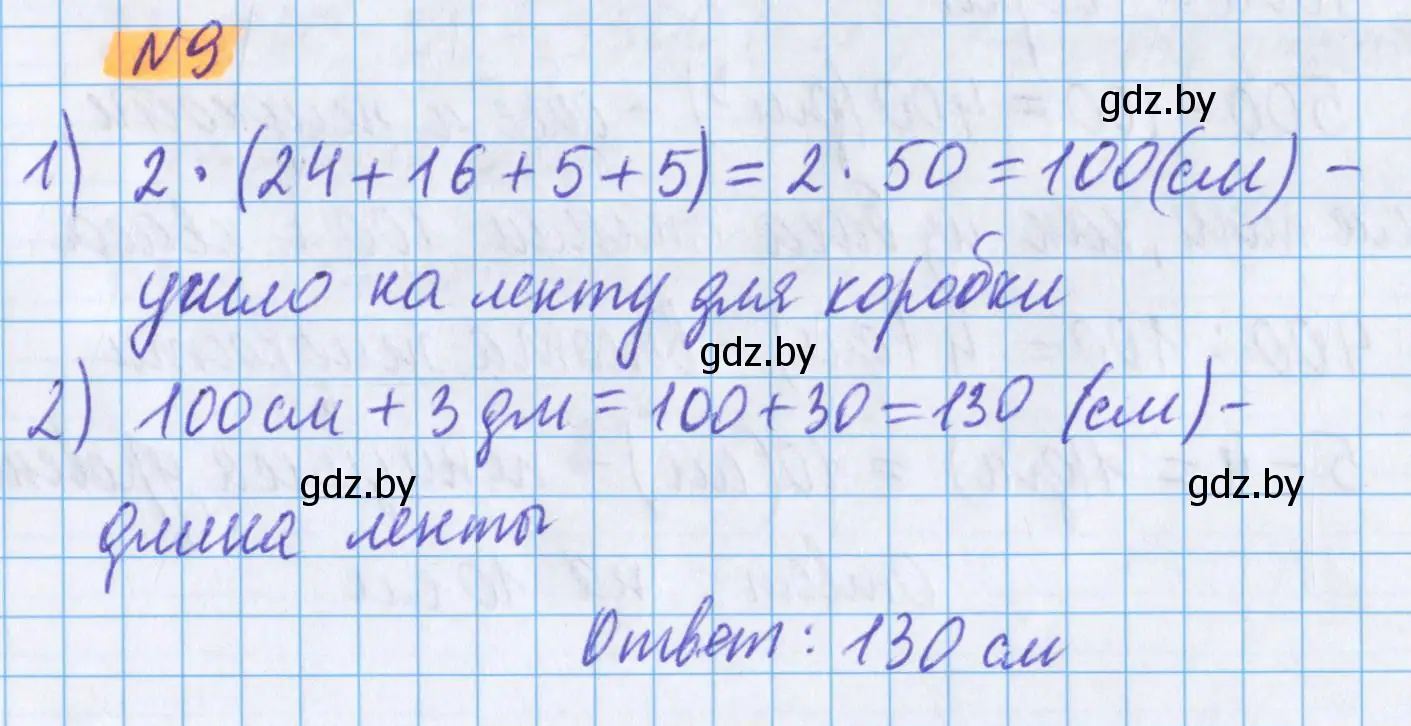 N9
gdz.by
1) 2·(24+16+5+5)=2·50=100(см) –
ушло на ленту для коробки
gdz.by
2) 100см + 3дм = 100+30=130 (см) –
gdz.by
gdz.by
длина ленты
Ответ: 130 см